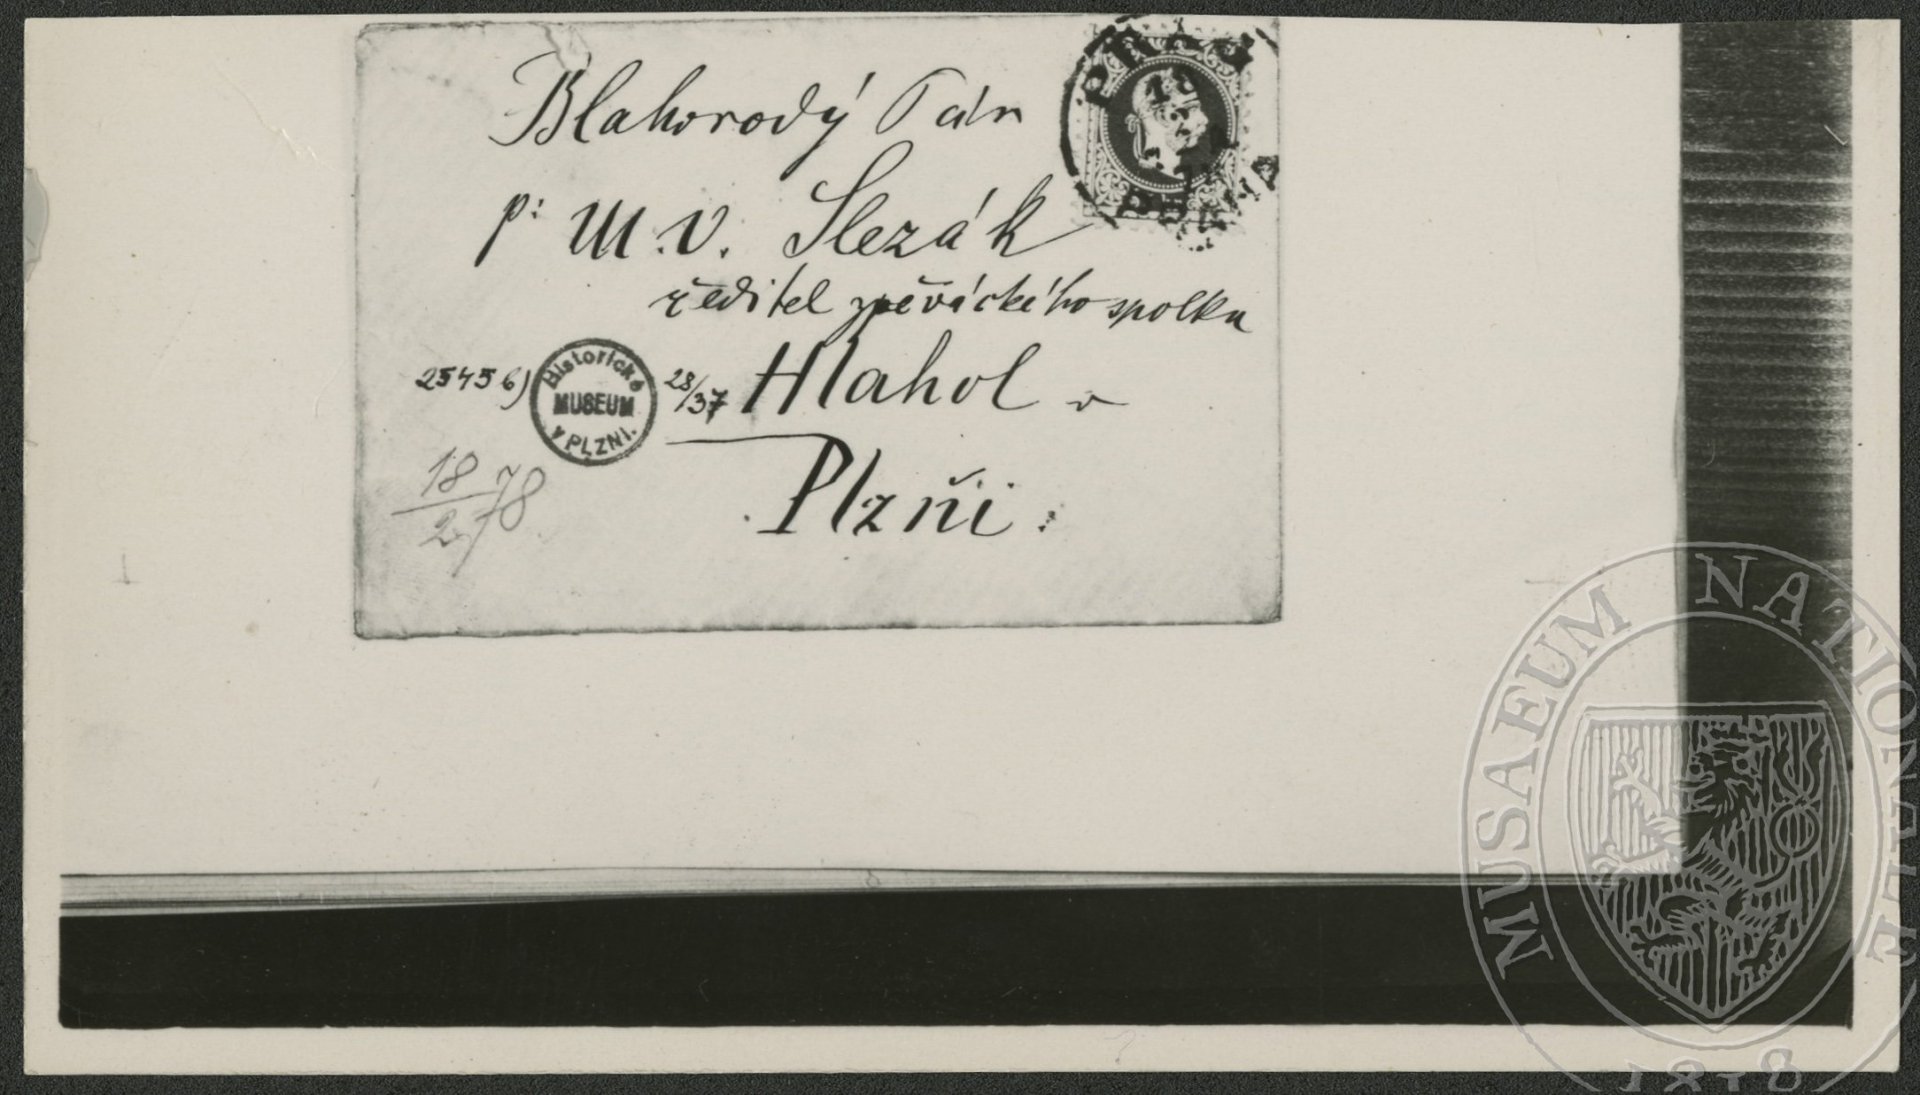 Blahorodý Pán
p: M.V. Slezák
ředitel zpěváckého spolku
Hlahol v
Plzňi
25456)
Historické
MUSEUM
v PLZNI.
28/37
18/2 78
PRAG
18
MUSAEUM NATIONALE
1818